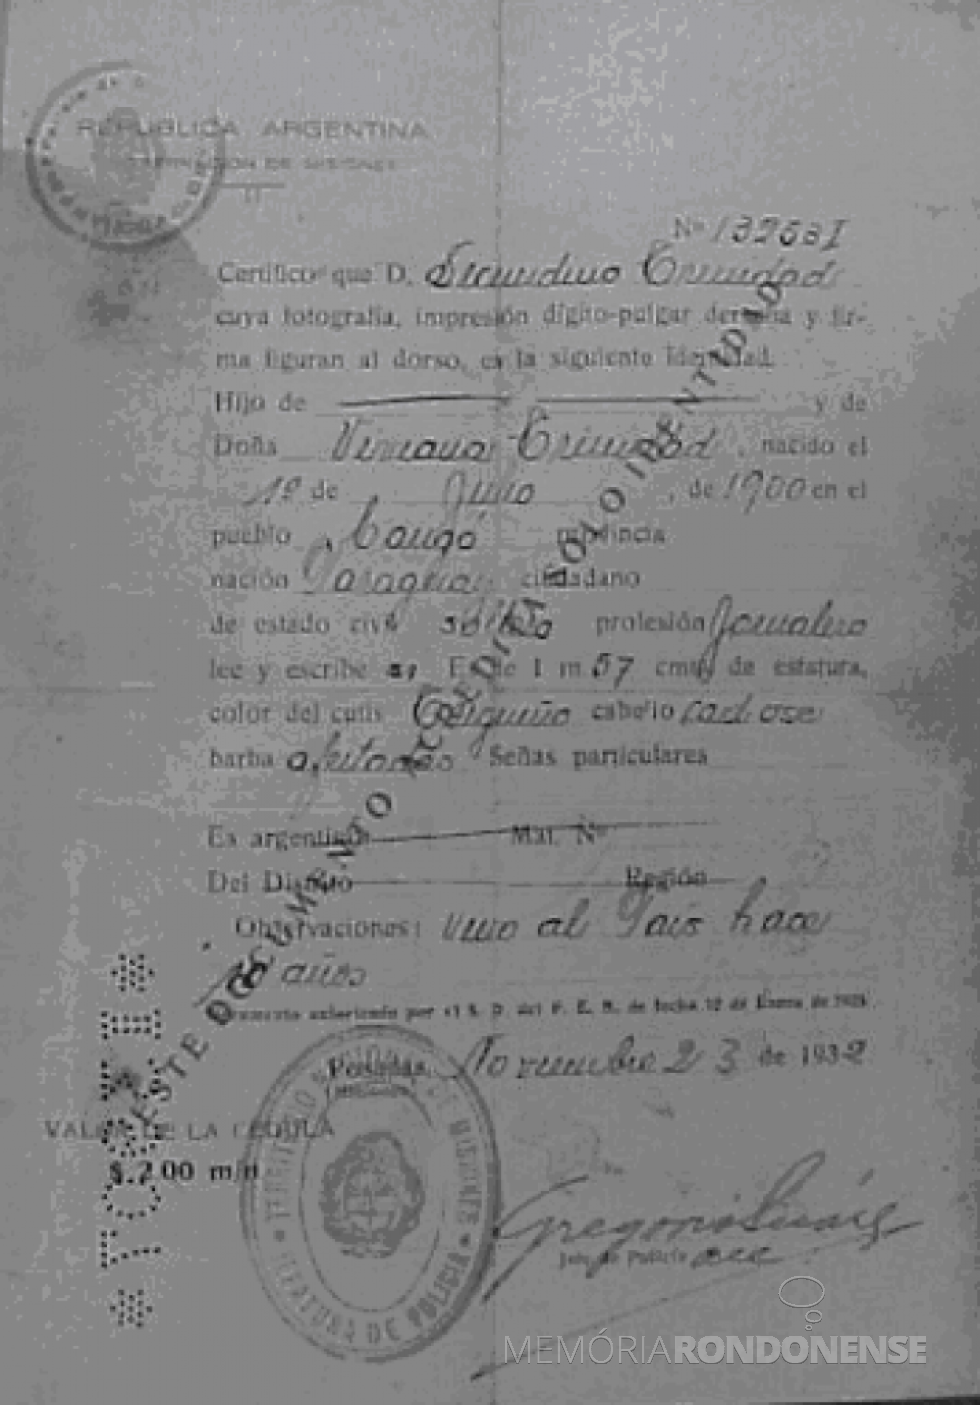 REPUBLICA ARGENTINA
GOBERNACION DE MISIONES
Nº 132581
Certifico que D. Secundino Trinidad
cuya fotografía, impresión dígito-pulgar derecha y fir-
ma figuran al dorso, es la siguiente Identidad.
Hijo de y de
Doña Trinidad, nacido el
1º de Junio, de 1900 en el
pueblo provincia
nación Paraguay ciudadano
de estado civil soltero profesión Jornalero
lee y escribe si Es de 1 m. 57 cmts. de estatura,
color del cutis Trigueño cabello
barba afeitada Señas particulares
Es argentino Mat. Nº
Del Distrito Región
Observaciones: Vino al Pais hace
años
Documento autorizado por el S. D. del P. E. N. de fecha 12 de Enero de
Posadas, Noviembre 23 de 1932
VALOR DE LA CEDULA
$ 2.00 m/n
ESTE DOCUMENTO ACREDITA SOLO IDENTIDAD
TERRITORIO DE MISIONES
JEFATURA DE POLICIA
Gregorio
Jefe de Policía
MEMÓRIARONDONENSE